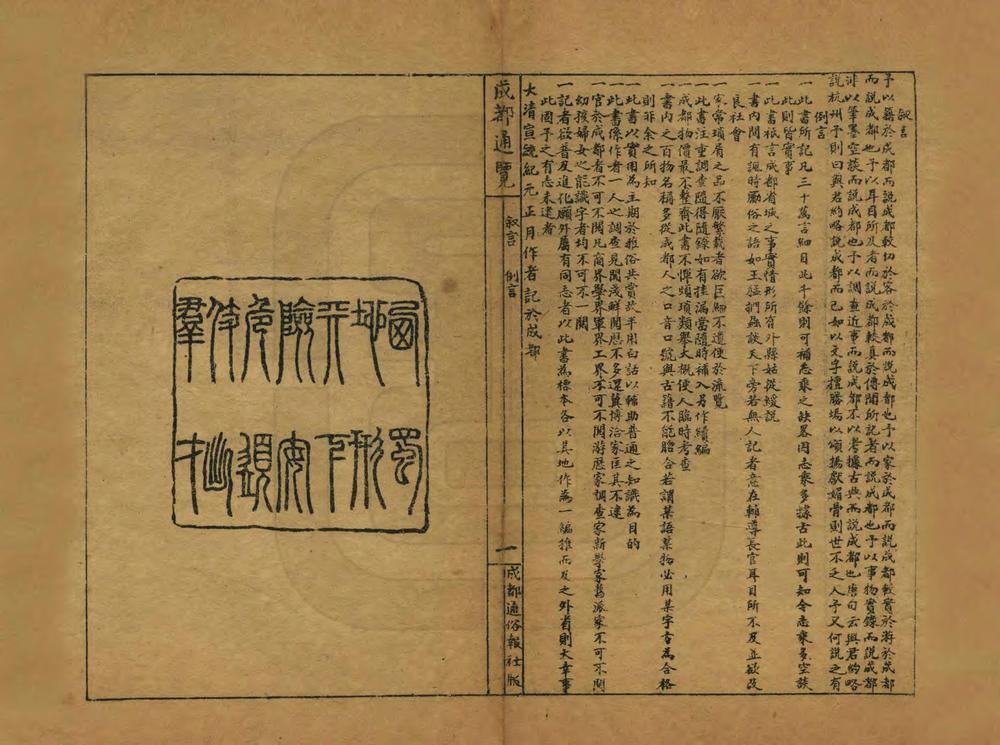 敘言
予以籍於成都而說成都較切於客於成都而說成都也予以家於成都而說成都較實於游於成都
而說成都也予以耳目所及者而說成都較真於傳聞所記者而說成都也予以事物實錄而說成都
非以筆墨空談而說成都也予以調查近事而說成都不以考據古典而說成都也唐句云與君約略
說杭州予則曰與君約略說成都而已如以文字擅勝場以頌揚獻媚骨則世不乏人予又何說之有
例言
一此書所記凡三十萬言細目此千餘則可補志乘之缺畧因志乘多據古此則可知今志乘多空談
此則皆實事
一此書祇言成都省城之事實情形所有外縣姑從緩說
一書內間有諷時勵俗之語如王猛捫蝨談天下旁若無人記者意在輔導長官耳目所不及並欲改
良社會
一家常瑣屑之品不厭繁載者欲巨細不遺便於流覽
一此書注重調查隨得隨錄如有挂漏當隨時補入另作續編
一成都物價最不整齊此書不憚煩瑣類舉大概使人臨時考查
一書內之百物名稱多從成都人之口音口號與古籍不能脗合若謂某語某物必用某字音為合格
則非余之所知
一此書以實用為主期於雅俗共賞故半用白話以輔助普通之知識為目的
一此書係作者一人之調查見聞淺鮮閱歷不多還冀博洽家匡其不逮
一官於成都者不可不閱凡商界學界軍界工界不可不閱游歷家調查家新學家舊派家不可不閱
幼孩婦女之能識字者均不可不一閱
一記者欲普及進化願外屬有同志者以此書為標本各以其地作為一編推而及之外省則大幸事
此固予之有志未逮者
大清宣統紀元正月作者記於成都
成都通覽
敘言 例言
一
成都通俗報社版
西蜀
地形
天下
險安
危須
仗出
羣才